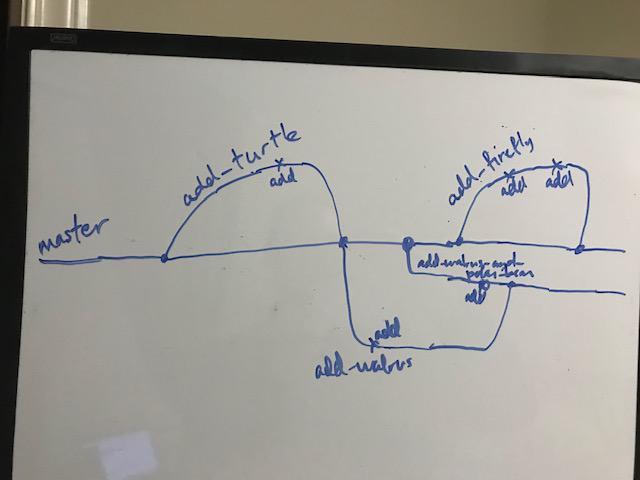 add-turtle
add
add-firefly
add
add
master
add-walrus-and-
polar-bear
add
add
add-walrus